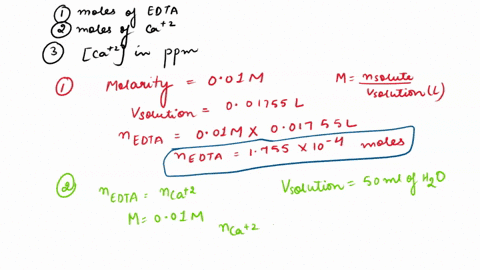 ① moles of EDTA
② moles of Ca⁺²
③ [Ca⁺²] in ppm
① Molarity = 0.01M M = nsolute / Vsolution(L)
Vsolution = 0.01755 L
nEDTA = 0.01M × 0.01755L
nEDTA = 1.755 × 10⁻⁴ moles
② nEDTA = nCa⁺² Vsolution = 50 ml of H₂O
M = 0.01M
nCa⁺²